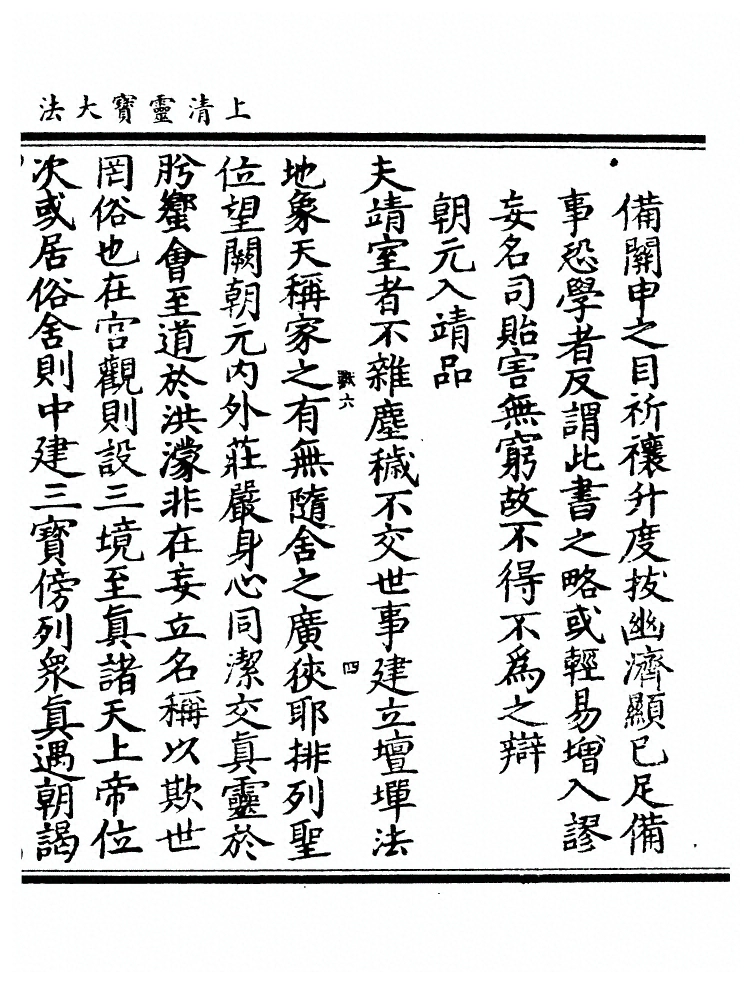 上清靈寳大法
備關申之目祈禳升度拔幽濟顯已足備
事恐學者反謂此書之略或輕易增入謬
妄名司貽害無窮故不得不爲之辯
朝元入靖品
夫靖室者不雜塵穢不交世事建立壇墠法
六 四
地象天稱家之有無隨舍之廣狹耶排列聖
位望闕朝元内外莊嚴身心同潔交眞靈於
肹蠁會至道於洪濛非在妄立名稱以欺世
罔俗也在宫觀則設三境至眞諸天上帝位
次或居俗舍則中建三寳傍列衆眞遇朝謁